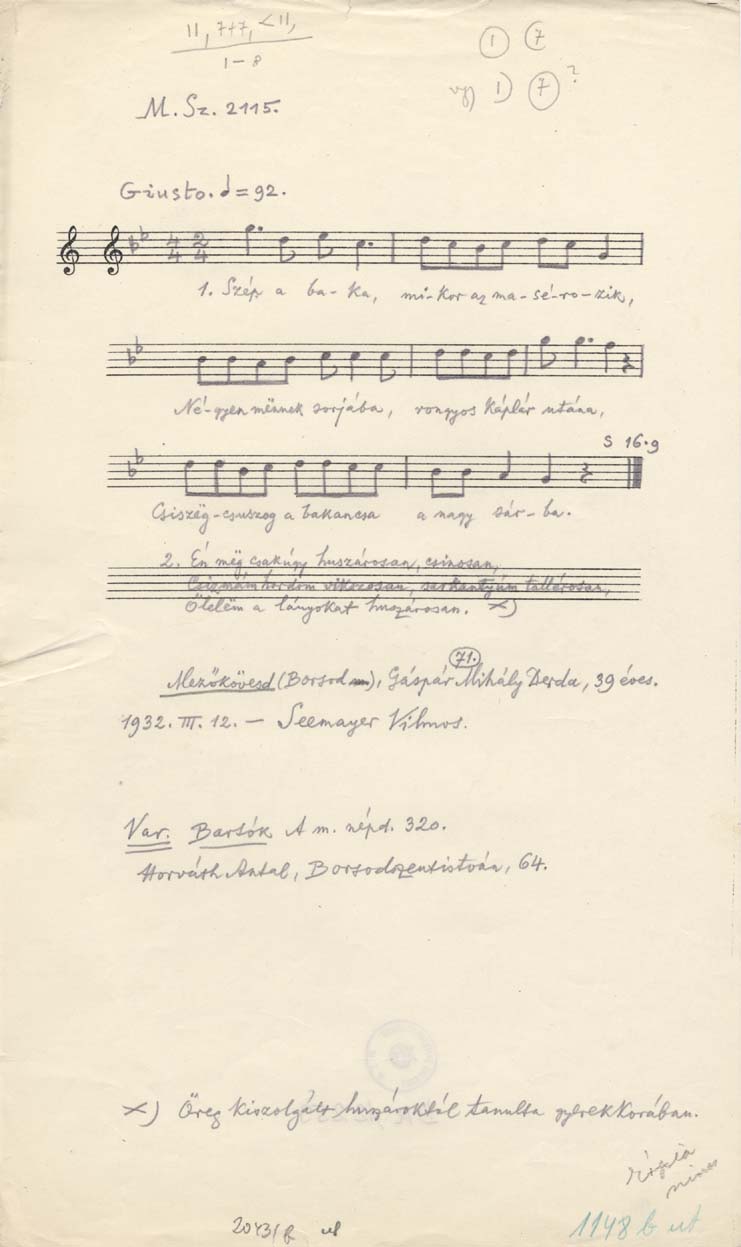 11, 7+7, <11,
1–8
1 7
vagy 1) 7 ?
M. Sz. 2115.
Giusto. ♩=92.
4/4 2/4
1. Szép a ba-ka, mi-kor az ma-sé-ro-zik,
Né-gyen mënnek sorjába, rongyos káplár utána,
S 16.9
Csiszëg-csuszog a bakancsa a nagy sár-ba.
2. Én mëg csakúgy huszárosan, csinosan,
Csizmám hordom vikcosan, sarkantyúm tallérosan,
Ölelëm a lányokat huszárosan. x)
71.
Mezőkövesd (Borsod m), Gáspár Mihály Derda, 39 éves.
1932. III. 12. — Seemayer Vilmos.
Var. Bartók A m. népd. 320.
Horváth Antal, Borsodszentistván, 64.
x) Öreg kiszolgált huszároktól tanulta gyerekkorában.
nincs
2043/b ut
1148 b ut